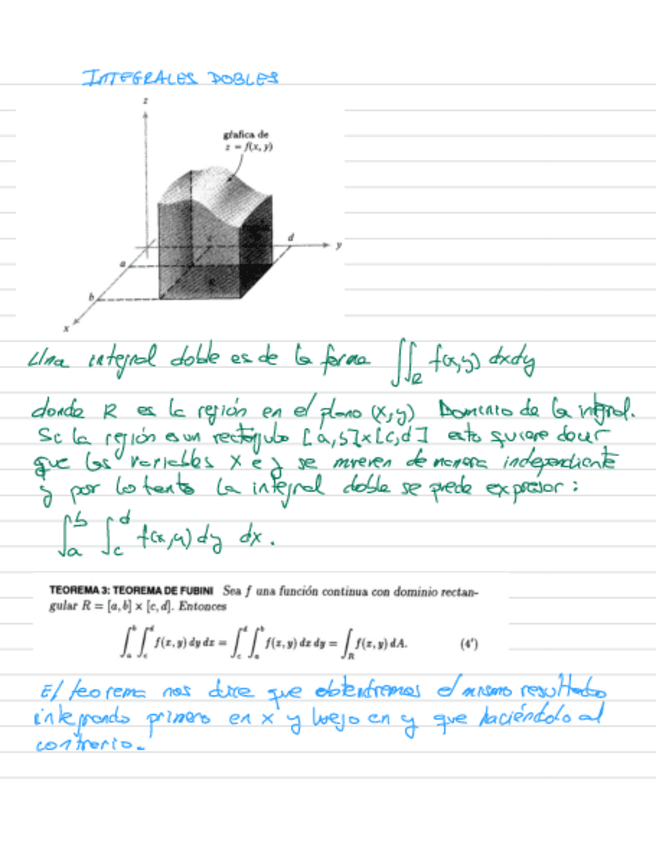 INTEGRALES DOBLES
z
gráfica de
z = f(x, y)
c
d
y
a
R
b
x
Una integral doble es de la forma ∬_R f(x,y) dxdy
donde R es la región en el plano (x,y) Dominio de la integral.
Si la región es un rectángulo [a,b]x[c,d] esto quiere decir
que las variables x e y se mueven de manera independiente
y por lo tanto la integral doble se puede expresar:
∫_a^b ∫_c^d f(x,y) dy dx.
TEOREMA 3: TEOREMA DE FUBINI Sea f una función continua con dominio rectan-
gular R = [a, b] × [c, d]. Entonces
∫_a^b ∫_c^d f(x, y) dy dx = ∫_c^d ∫_a^b f(x, y) dx dy = ∫_R f(x, y) dA. (4')
El teorema nos dice que obtendremos el mismo resultado
integrando primero en x y luego en y que haciéndolo al
contrario.